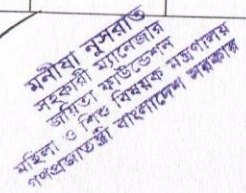 মনীষা নুসরাত
সহকারী ম্যানেজার
জয়িতা ফাউন্ডেশন
মহিলা ও শিশু বিষয়ক মন্ত্রণালয়
গণপ্রজাতন্ত্রী বাংলাদেশ সরকার